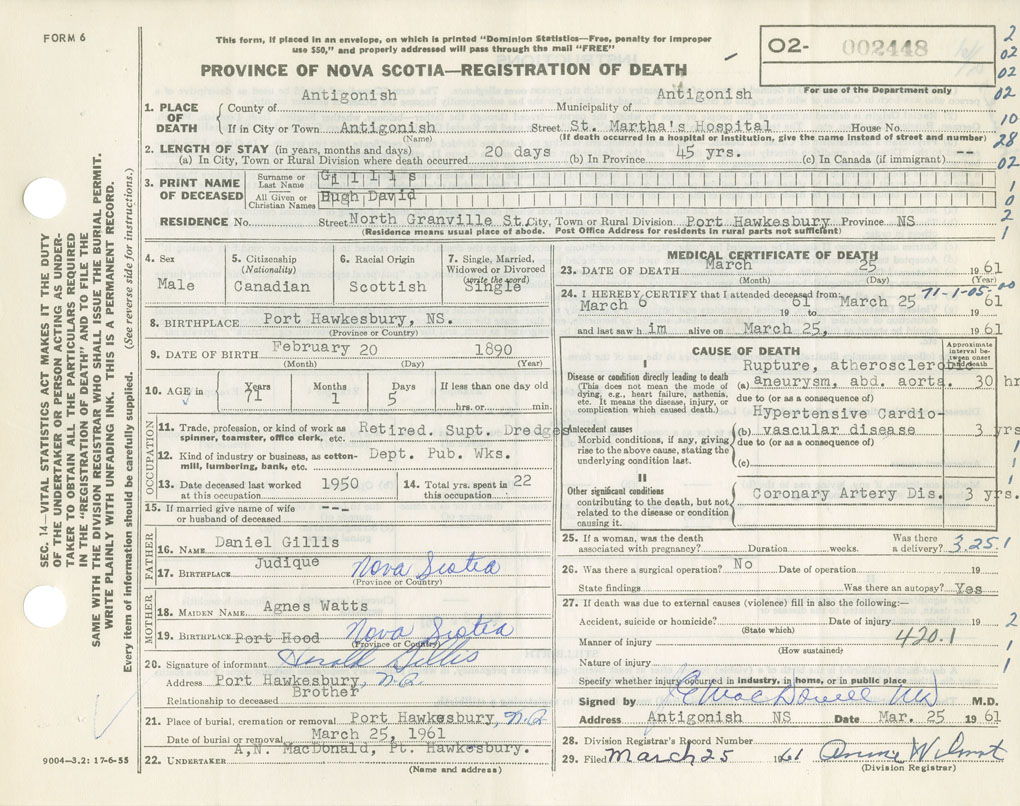 FORM 6
This form, if placed in an envelope, on which is printed "Dominion Statistics—Free, penalty for improper
use $50," and properly addressed will pass through the mail "FREE"
02- 002448
For use of the Department only
PROVINCE OF NOVA SCOTIA—REGISTRATION OF DEATH
2
02
02
02
10
28
02
1
0
2
1
SEC. 14—VITAL STATISTICS ACT MAKES IT THE DUTY
OF THE UNDERTAKER OR PERSON ACTING AS UNDER-
TAKER TO OBTAIN ALL THE PARTICULARS REQUIRED
IN THE "REGISTRATION OF DEATH" AND TO FILE THE
SAME WITH THE DIVISION REGISTRAR WHO SHALL ISSUE THE BURIAL PERMIT.
WRITE PLAINLY WITH UNFADING INK. THIS IS A PERMANENT RECORD.
Every item of information should be carefully supplied. (See reverse side for instructions.)
1. PLACE OF DEATH
County of Antigonish Municipality of Antigonish
If in City or Town Antigonish Street St. Martha's Hospital House No.
(Name) (If death occurred in a hospital or institution, give the name instead of street and number)
2. LENGTH OF STAY (in years, months and days)
(a) In City, Town or Rural Division where death occurred 20 days (b) In Province 45 yrs. (c) In Canada (if immigrant) --
3. PRINT NAME OF DECEASED
Surname or Last Name Gillis
All Given or Christian Names Hugh David
RESIDENCE No. Street North Granville St. City, Town or Rural Division Port Hawkesbury Province NS
(Residence means usual place of abode. Post Office Address for residents in rural parts not sufficient)
4. Sex Male
5. Citizenship (Nationality) Canadian
6. Racial Origin Scottish
7. Single, Married, Widowed or Divorced (write the word) Single
8. BIRTHPLACE Port Hawkesbury, NS.
(Province or Country)
9. DATE OF BIRTH February 20 1890
(Month) (Day) (Year)
10. AGE in Years 71 Months 1 Days 5 If less than one day old
hrs. or min.
OCCUPATION
11. Trade, profession, or kind of work as spinner, teamster, office clerk, etc. Retired. Supt. Dredges
12. Kind of industry or business, as cotton-mill, lumbering, bank, etc. Dept. Pub. Wks.
13. Date deceased last worked at this occupation 1950
14. Total yrs. spent in this occupation 22
15. If married give name of wife or husband of deceased ---
FATHER
16. NAME Daniel Gillis
17. BIRTHPLACE Judique Nova Scotia
(Province or Country)
MOTHER
18. MAIDEN NAME Agnes Watts
19. BIRTHPLACE Port Hood Nova Scotia
(Province or Country)
20. Signature of informant Harold Gillis
Address Port Hawkesbury, N.S.
Relationship to deceased Brother
21. Place of burial, cremation or removal Port Hawkesbury, N.S.
Date of burial or removal March 25, 1961
22. UNDERTAKER A,N. MacDonald, Pt. Hawkesbury.
(Name and address)
9004-3.2: 17-6-55
MEDICAL CERTIFICATE OF DEATH
23. DATE OF DEATH March 25 1961
(Month) (Day) (Year)
24. I HEREBY CERTIFY that I attended deceased from: 71-1-05-00
March 6 1961 to March 25 1961
and last saw him alive on March 25, 1961
CAUSE OF DEATH
Approximate interval between onset and death
I
Disease or condition directly leading to death
(This does not mean the mode of dying, e.g., heart failure, asthenia, etc. It means the disease, injury, or complication which caused death.)
Rupture, atherosclerotic
(a) aneurysm, abd. aorts. 30 hr
due to (or as a consequence of)
Antecedent causes
Morbid conditions, if any, giving rise to the above cause, stating the underlying condition last.
Hypertensive Cardio-
(b) vascular disease 3 yrs
due to (or as a consequence of)
(c)
II
Other significant conditions
contributing to the death, but not related to the disease or condition causing it.
Coronary Artery Dis. 3 yrs.
25. If a woman, was the death associated with pregnancy? Duration weeks. Was there a delivery? 3.25.1
26. Was there a surgical operation? No Date of operation 19
State findings Was there an autopsy? Yes
27. If death was due to external causes (violence) fill in also the following:—
Accident, suicide or homicide? Date of injury 19
(State which)
Manner of injury 420.1
(How sustained)
Nature of injury
Specify whether injury occurred in industry, in home, or in public place
Signed by M.D.
Address Antigonish NS Date Mar. 25 1961
28. Division Registrar's Record Number
29. Filed March 25 1961
(Division Registrar)
1
1
1
2
1
1